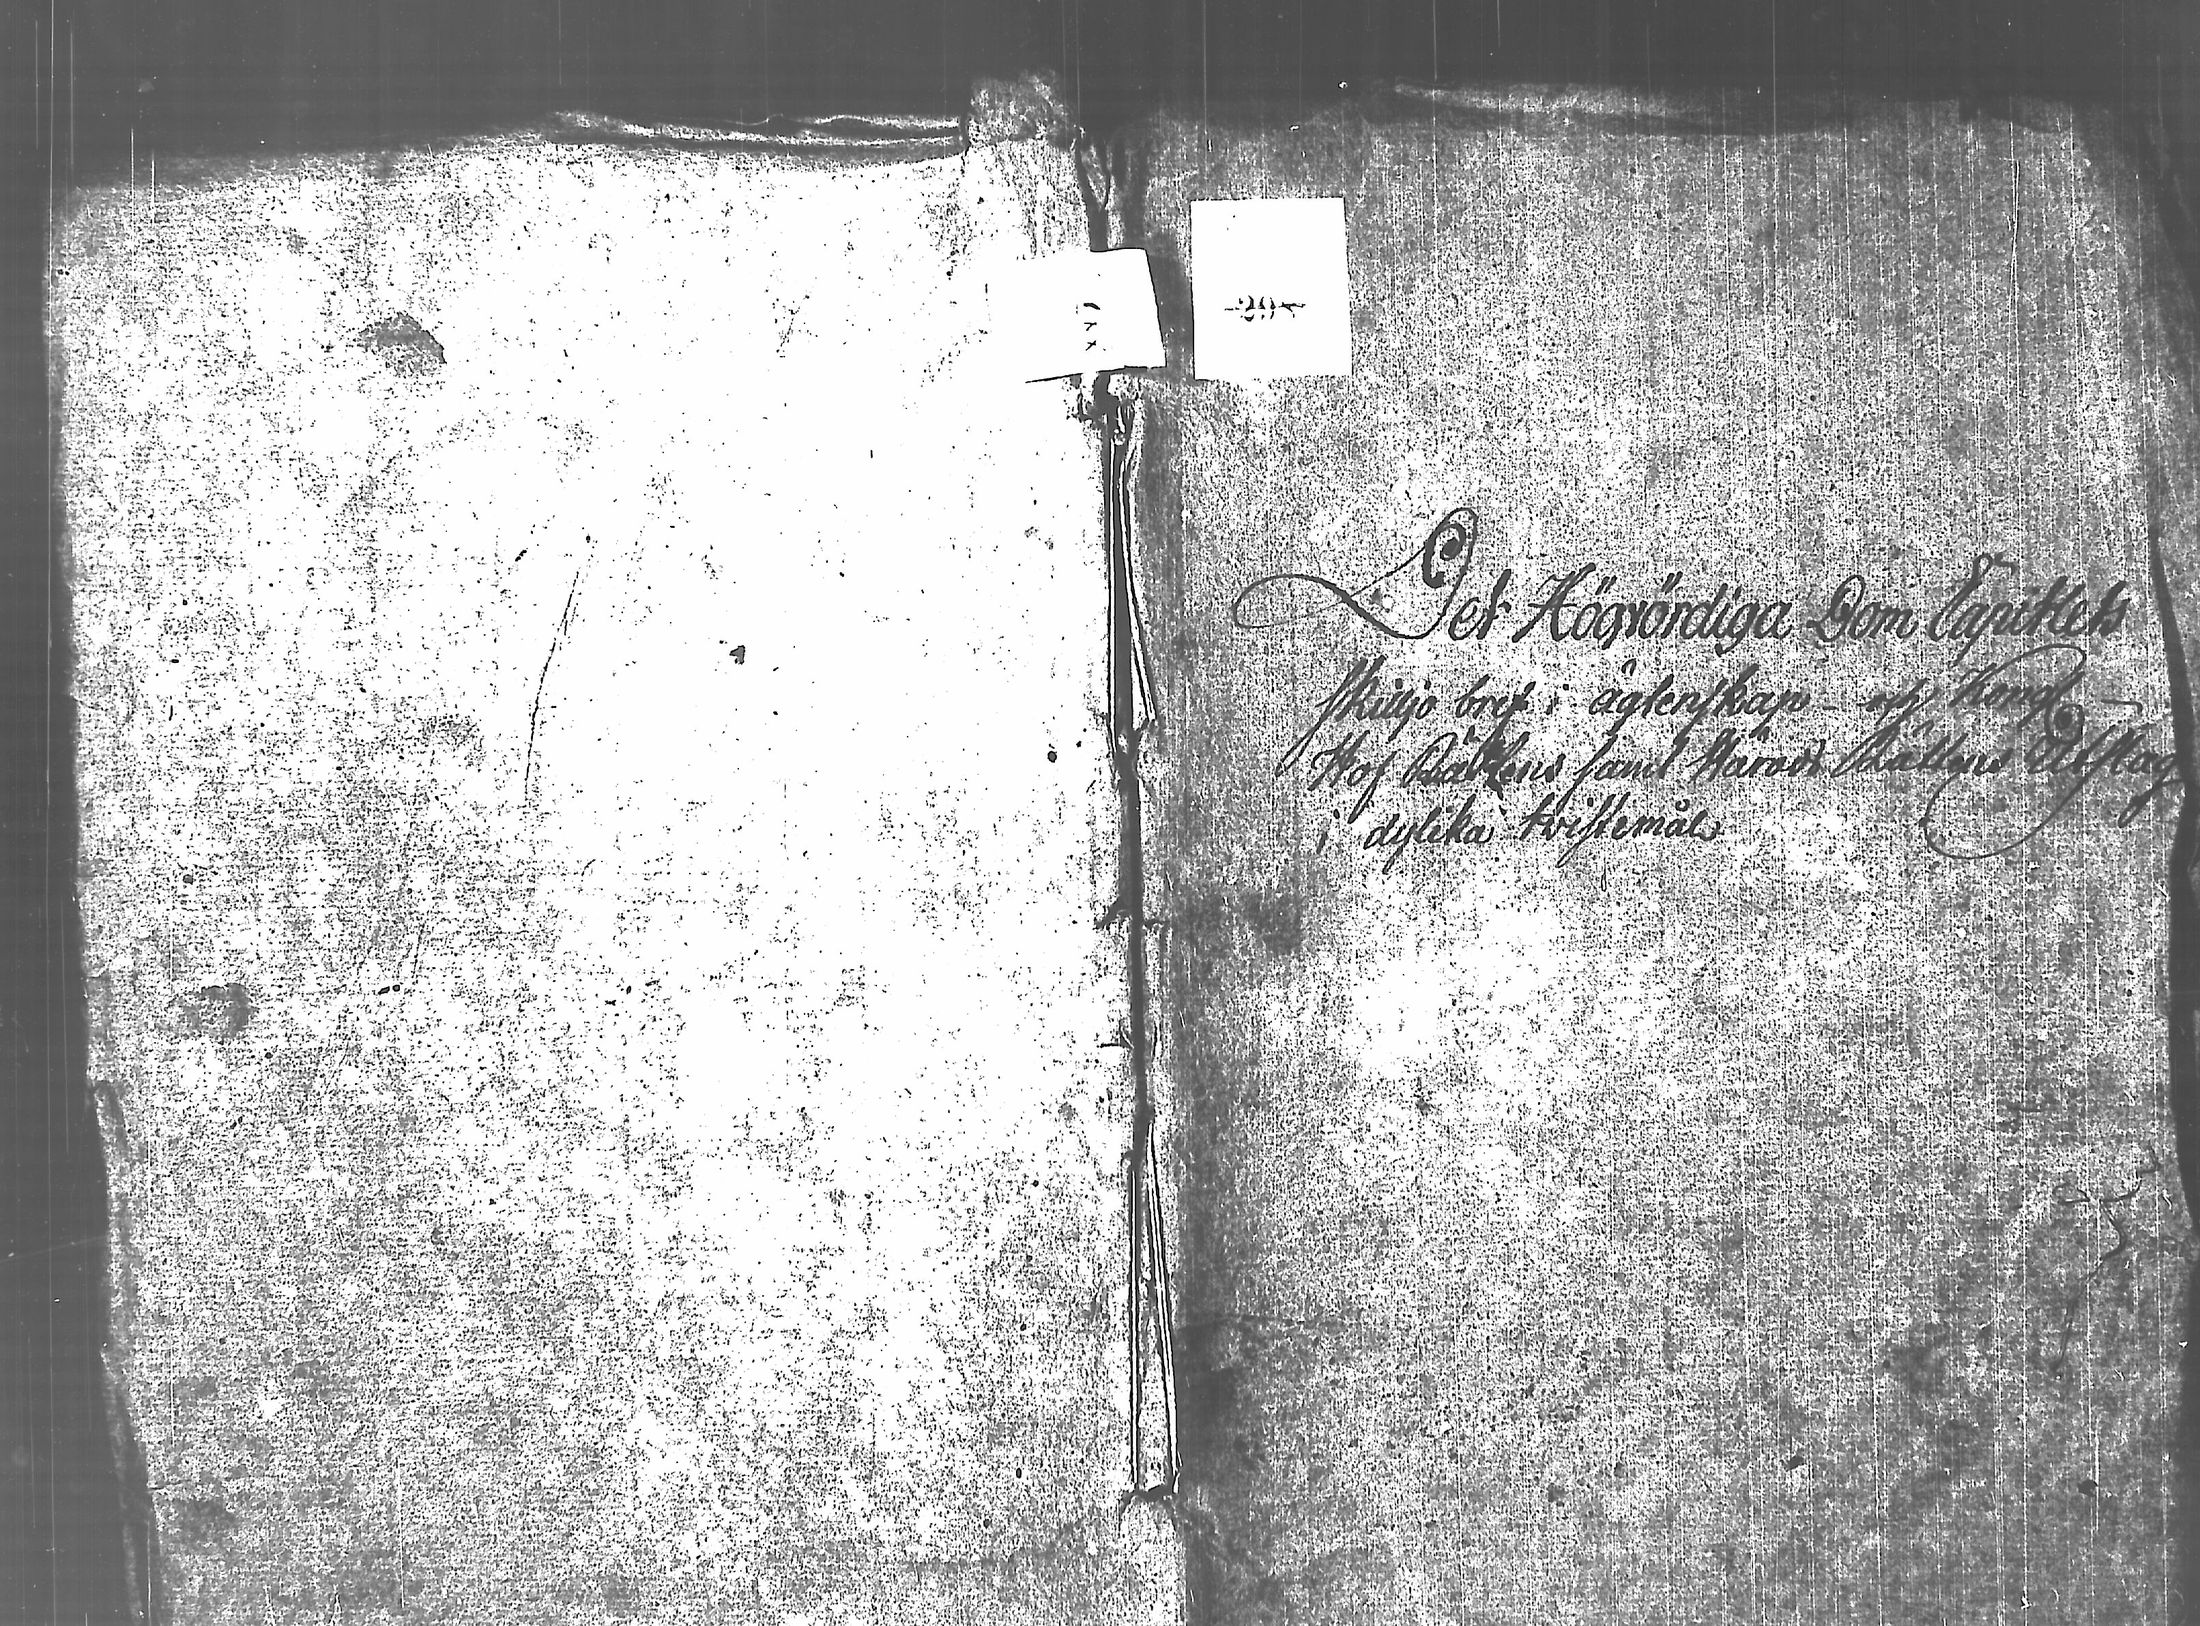 Det Högvördiga Dom Capitlets
skiljo bref i ägtenskap - och Kongl
Hof Rättens samt Härads Rättens Utslag
i dylika tvistemål